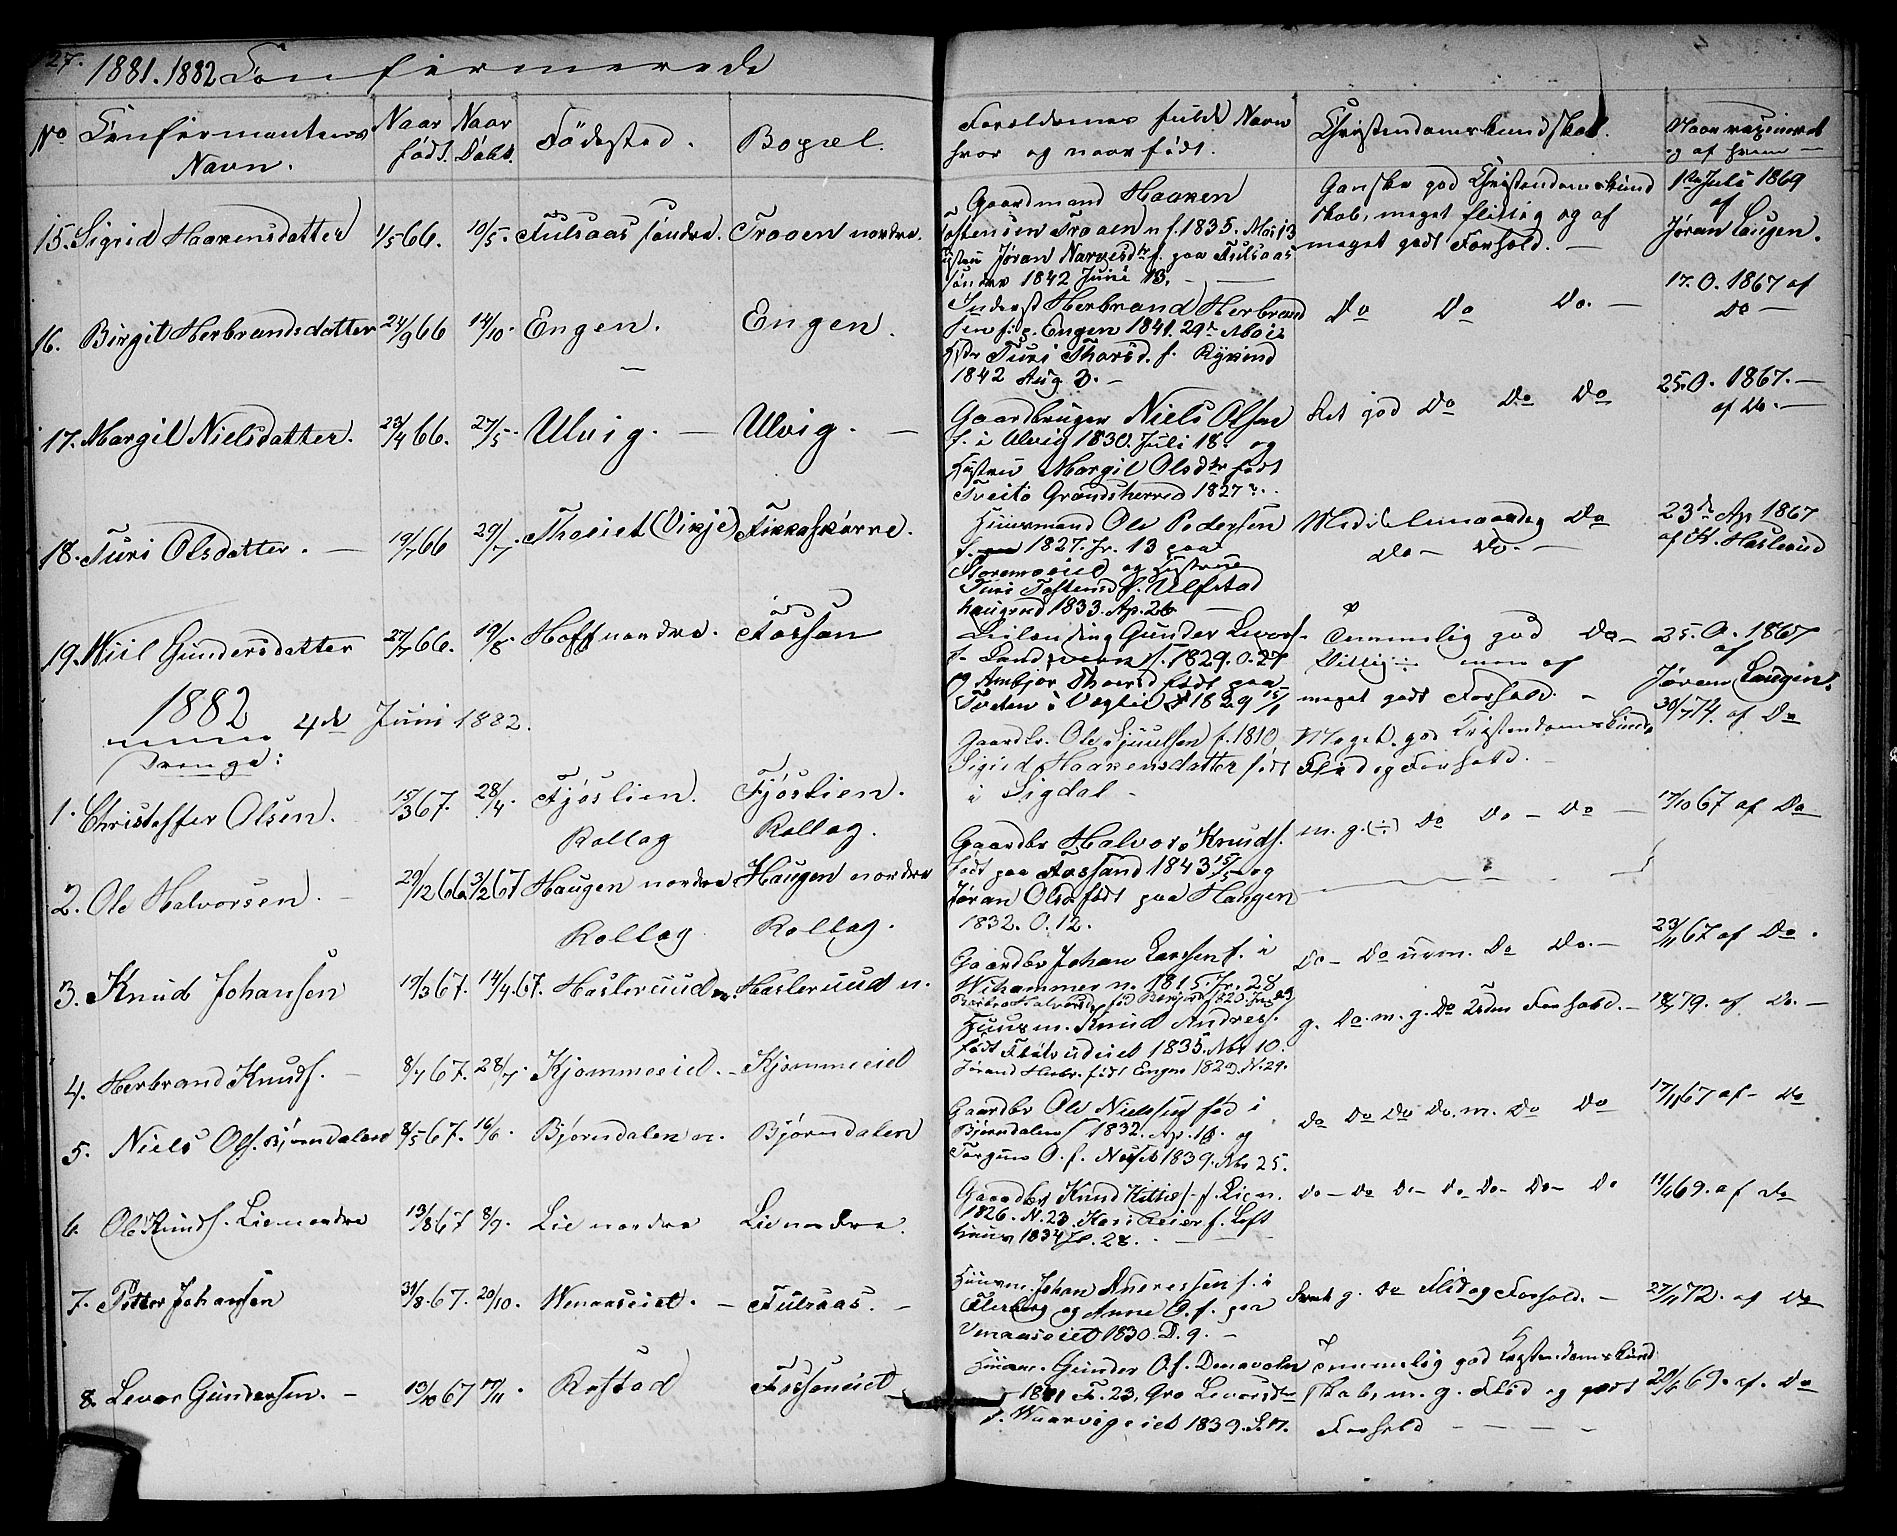 27.
1881. 1882 Confirmerede
No Confirmantens Navn.
Naar født.
Naar Døbt.
Fødested.
Bopæl.
Forældrenes fulde Navn
hvor og naar født.
Christendomskundskab.
Naar vaxineret
og af hvem —
15. Sigrid Haakensdatter 1/5 66. 10/5. Fulsaas søndre. Traaen nordre.
Gaardmand Haaken
Tostensen Traaen n f. 1835. Mai 13
Hustru Jøran Narvesdtr f. paa Fulsaas
søndre 1842 Juni 13.
Ganske god Christendomskund
skab, meget flittig og af
meget godt Forhold. —
1ste Juli 1869
af
Jøran Laugen.
16. Birgit Herbrandsdatter 24/9 66 14/10. Engen. Engen.
Inderst Herbrand Herbrand
sen f. p. Engen 1841. 29de Mai
Hstr Turi Thorsd. f.
1842 Aug 3. —
Do Do Do. —
17. O. 1867 af
Do —
17. Margit Nielsdatter. 23/4 66. 27/5. Ulvig. — Ulvig. —
Gaardbruger Niels Olsen
f. i Ulvig 1830. Juli 18. og
Hustru Margit Olsdtr født
Tveito Gransherred 1827
Ret god Do Do Do
25. O. 1867. —
af Do. —
18. Turi Olsdatter. — 19/7 66 29/7. Thoeiet (Vikje) Fikkaskjørre.
Huusmand Ole Pedersen
f. 1827. Jr. 13 paa
Storemoeiet og Hustrue
Turi Tostensd f. Ulfstad
haugene 1833. Ap. 26 —
Middelmaadig Do
Do — Do. —
23de Ap 1867
af K. Haslerud
19. Kiil Gundersdatter 27/7 66. 19/8. Hoff nordre. Fossan
Leilending Gunder Levors.
f. Landsverk 1829. O. 27
og Ambjør Thoresd født paa
Foden i Veglie 1829 15/1
Temmelig god Do —
Villig men af
meget godt Forhold. —
25. O. 1867
af
Jøran Laugen.
1882 4de Juni 1882.
Drenge:
1. Christoffer Olsen. 15/3 67. 28/4. Fjøslien. Fjøslien.
Rollag Rollag.
Gaardbr. Ole Sjuulsen f. 1810
Sigrid Haakensdatter født
i Sigdal —
Meget god Kristendomskunds
Flid og Forhold. —
30/7 74. af Do
2. Ole Halvorsen. — 29/12 66 3/2 67 Haugen nordre Haugen nordre
Rollag Rollag.
Gaardbr Halvor Knuds.
født paa Fossand 1843 15/5 og
Jøran Olsd. født paa Haugen
1832. O. 12.
m. g. (÷) Do Do — Do —
17/10 67 af Do
3. Knud Johansen 19/3 67. 14/4 67. Haslerud n. Haslerud n.
Gaardbr Johan Larssen f. i
Wihammer n. 1815 Jr. 28
Do — Do Do Do. —
23/11 67 af Do.
4. Herbrand Knuds. — 8/7 67. 28/7. Kjømmeeiet. — Kjømmeeiet
Huusm. Knud Andres.
født 1835. Nbr 10.
Jørand Herbr. født Engen 1829. N. 29.
g. Do. m. g. Do Forhold. —
79. af Do. —
5. Niels Ols. Bjørndalen 8/5 67. 16/6. Bjørndalen n. Bjørndalen
Gaardbr Ole Nielssen fød i
Bjørndalen 1832. Ap. og
Torgun O. f. 1839. Nbr 25.
Do Do Do Do. m. Do Do
17/11 67 af — Do
6. Ole Knuds. Lie nordre 13/8 67 8/9. Lie nordre Lie nordre.
Gaardbr Knud Kittils. f. Lie n.
1826. N. 23. Kari f. Loft
huus 1834 Jr. 28.
Do — Do Do — Do Do — Do — Do
69. af Do
7. Petter Johansen 31/8 67. 20/10. Wenaaseiet. — Fulsaas. —
Huusm. Johan Andressen f. i
Flesberg og Anne O. f. paa
Venaaseiet 1830. D. 9. —
g. Do Flid og Forhold. —
27/11 72. af Do
8. Levor Gundersen. — 13/10 67 17/11. Rostad Fosseneiet
Huusm. Gunder O.
F. 23. Gro Levorsdtr
f. 1839.
Temmelig god Kristendomskund
skab, m. g. Flid og godt
Forhold — — —
69. af. Do